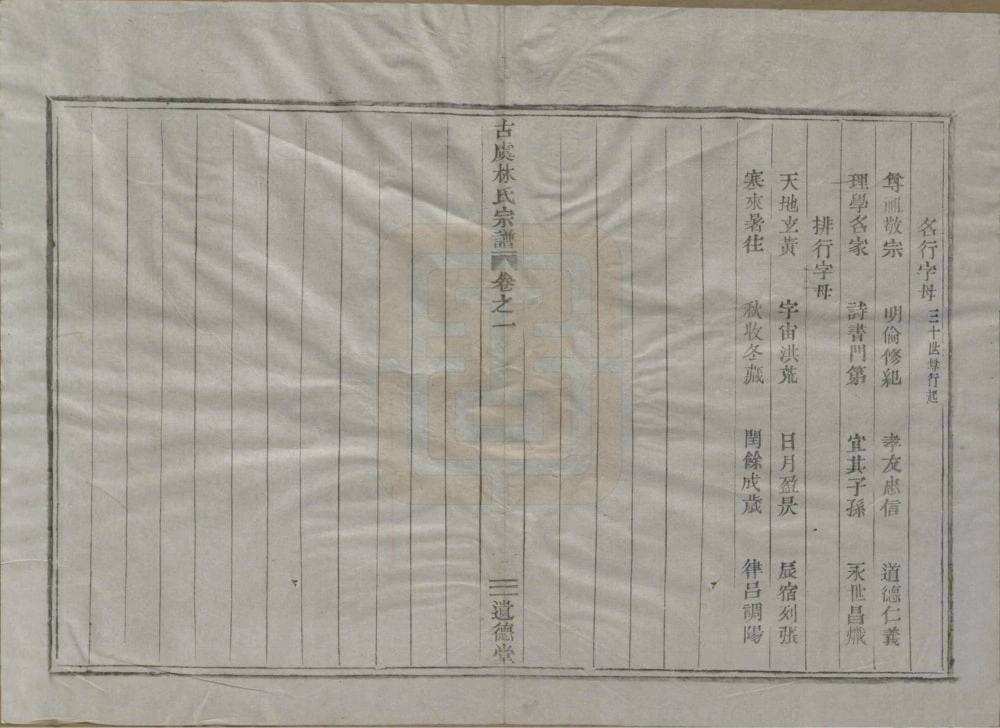 名行字母 三十世尊行起
尊祖敬宗 明倫修紀 孝友忠信 道德仁義
理學名家 詩書門第 宜其子孫 永世昌熾
排行字母
天地玄黃 宇宙洪荒 日月盈昃 辰宿列張
寒來暑往 秋收冬藏 閏餘成歲 律呂調陽
古處林氏宗譜 卷之一 三 遺德堂